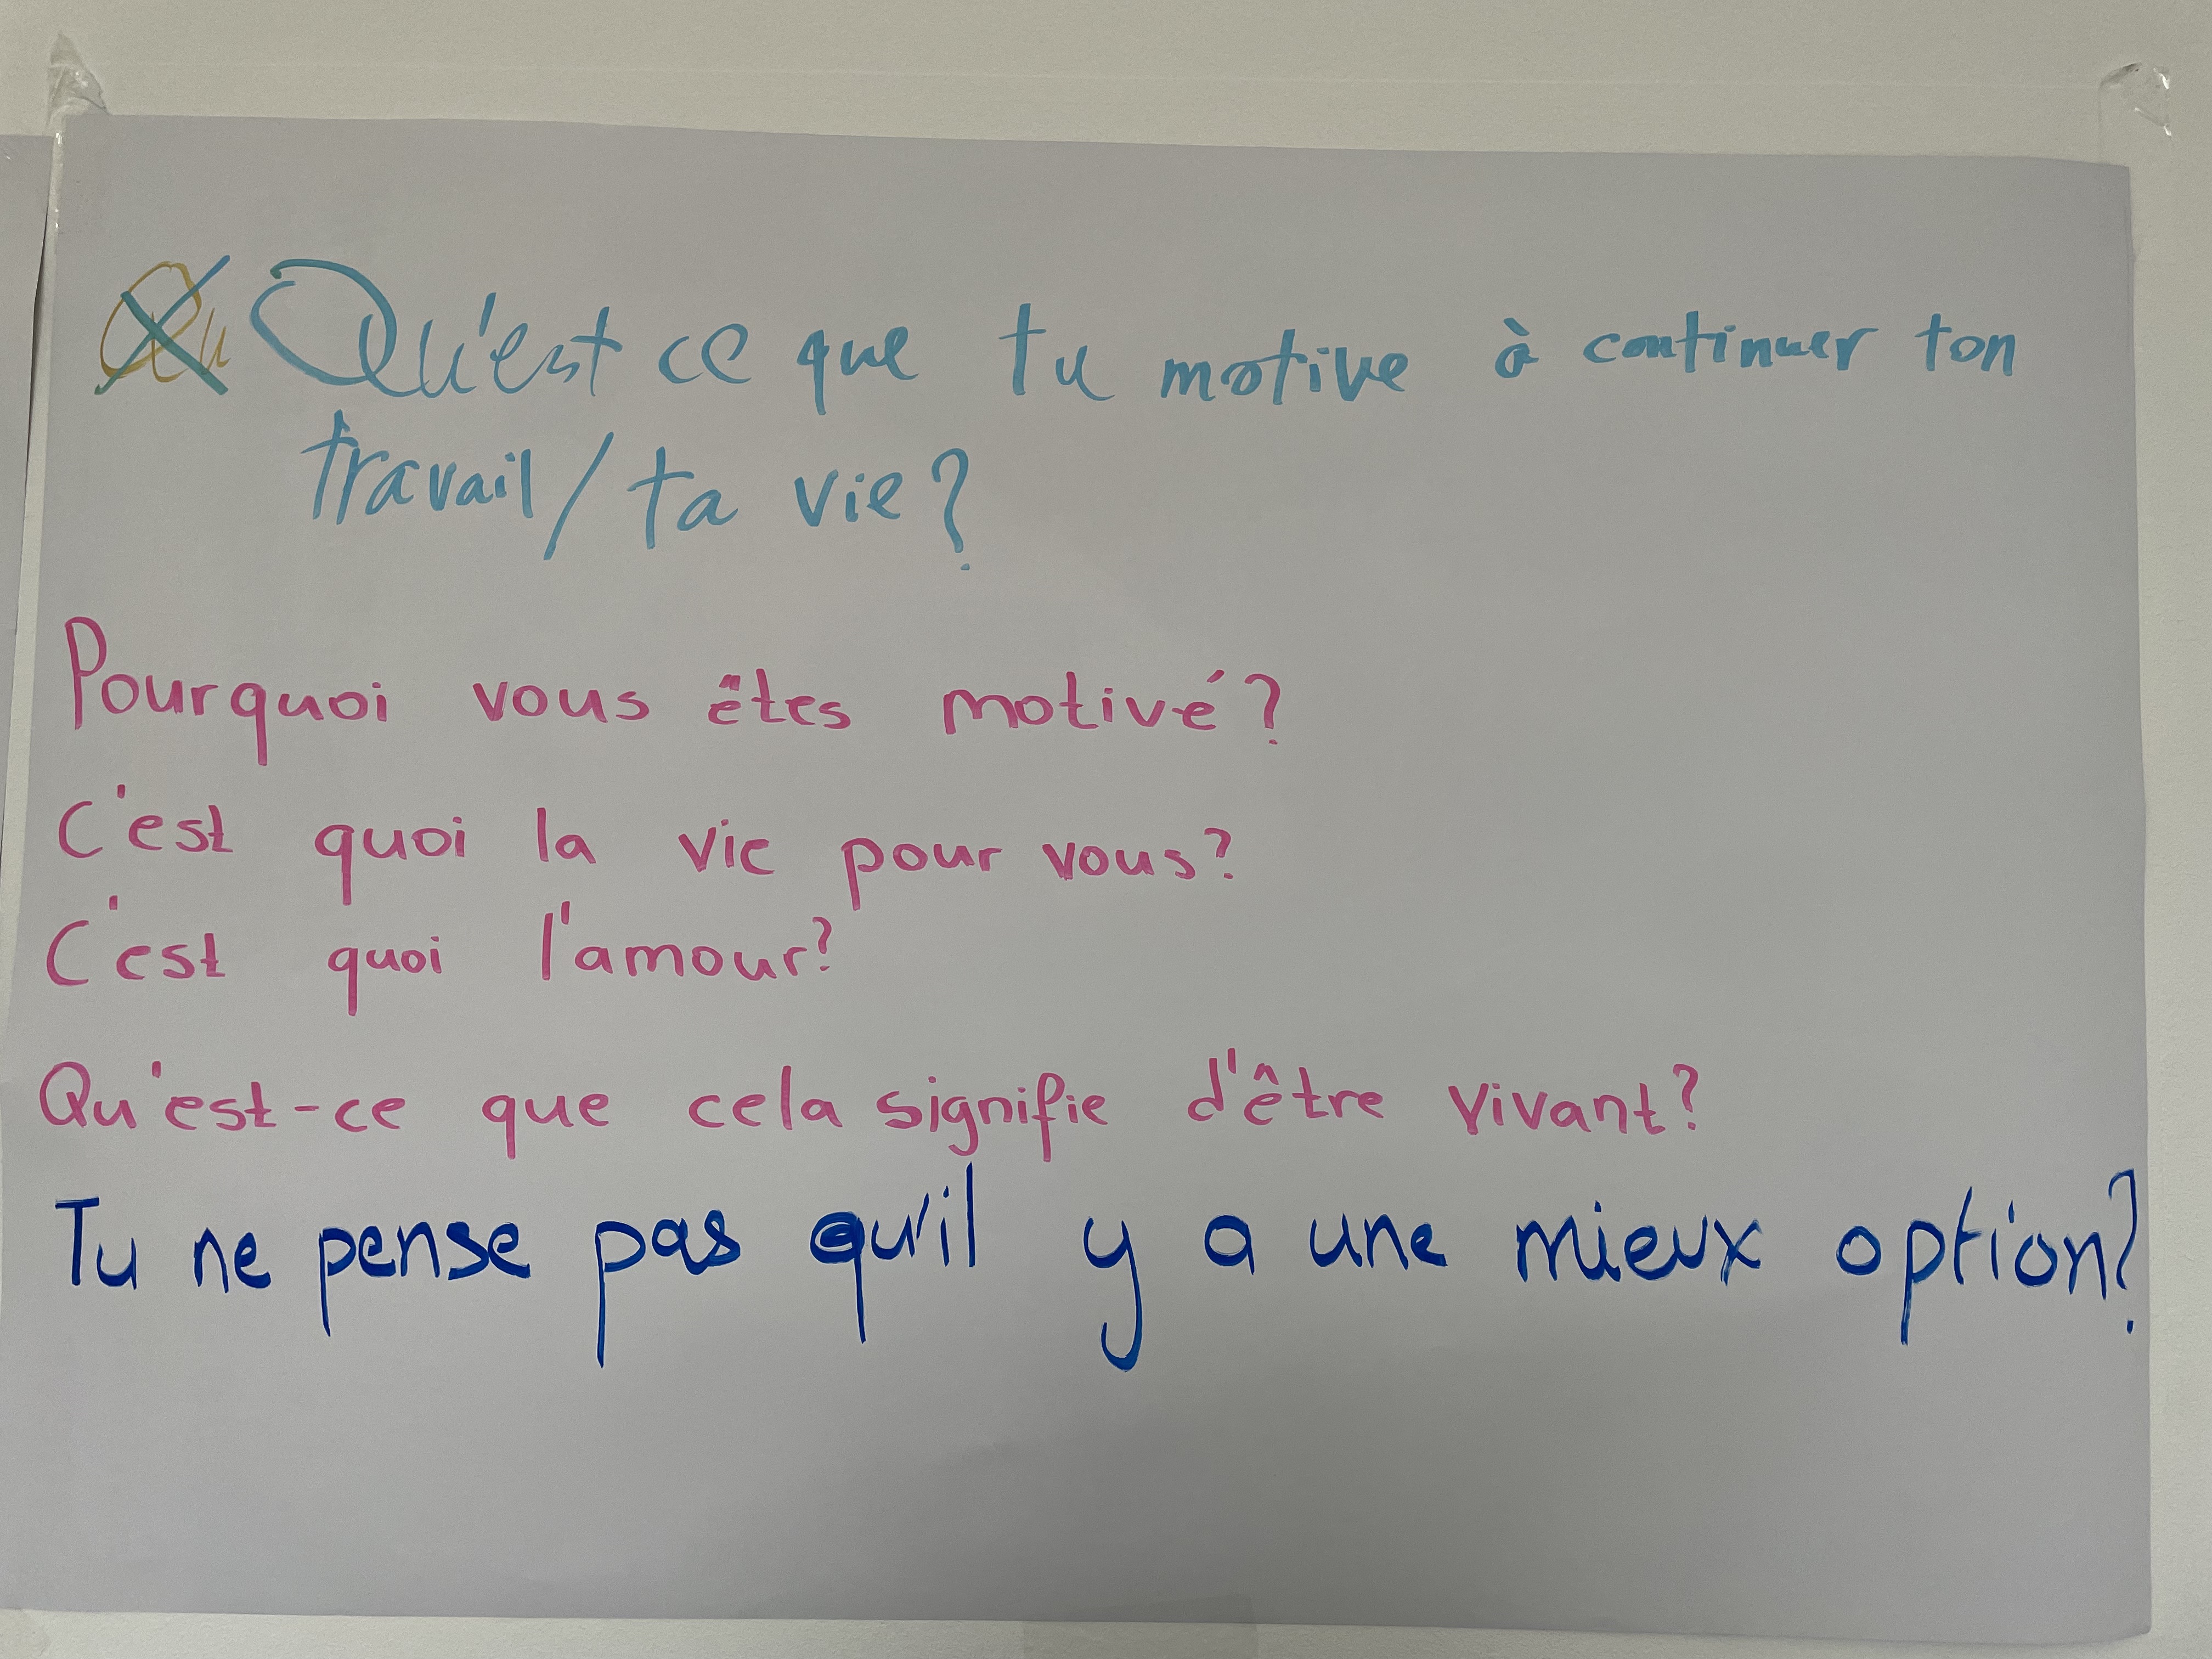 Qu Qu'est ce que tu motive à continuer ton
travail / ta vie ?
Pourquoi vous êtes motivé ?
C'est quoi la vie pour vous ?
C'est quoi l'amour ?
Qu'est-ce que cela signifie d'être vivant ?
Tu ne pense pas qu'il y a une mieux option ?